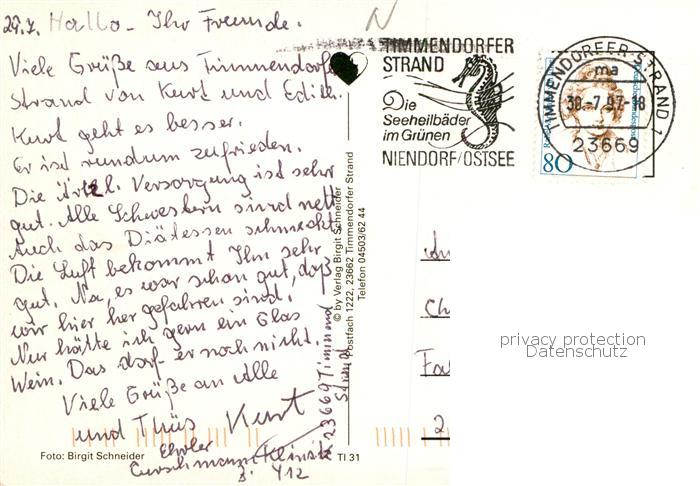 29.7. Hallo - Ihr Freunde.
Viele Grüße aus Timmendorfer
Strand von Kurt und Edith.
Kurt geht es besser.
Er ist rundum zufrieden.
Die Ärtzl. Versorgung ist sehr
gut. Alle Schwestern sind nett
Auch das Diätessen schmeckt.
Die Luft bekommt Ihm sehr
gut. Na, es war schon gut, daß
wir hier her gefahren sind.
Nur hätte ich gern ein Glas
Wein. Das darf er noch nicht.
Viele Grüße an Alle
und Thüs Kurt
Curschmann Klinik
Z. 412
23669 Timmend
Strand
Foto: Birgit Schneider
TI 31
© by Verlag Birgit Schneider
Postfach 1222, 23662 Timmendorfer Strand
Telefon 04503/62 44
N
TIMMENDORFER
STRAND
Die
Seeheilbäder
im Grünen
NIENDORF/OSTSEE
TIMMENDORFER STRAND 1
ma
30.-7.97-18
23669
80
An
Ch
Fa
2
privacy protection
Datenschutz